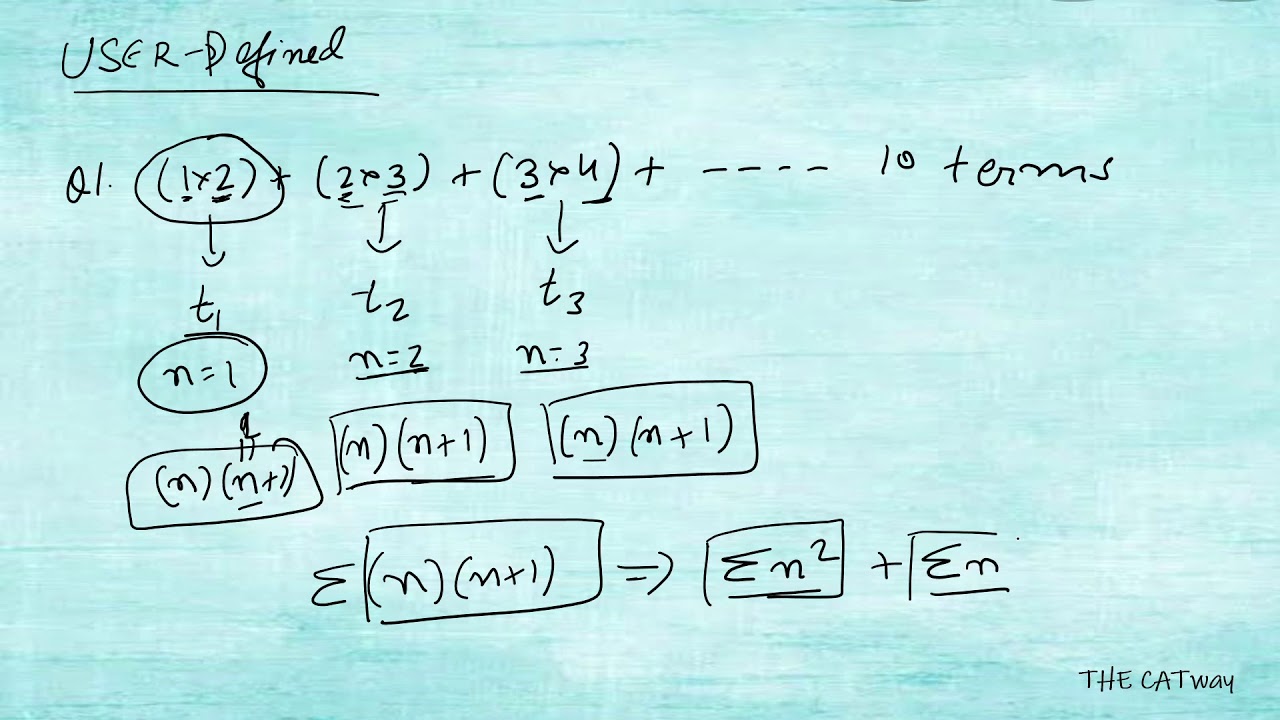 USER-Defined
Q1. (1×2) + (2×3) + (3×4) + ---- 10 terms
t₁ t₂ t₃
n=1 n=2 n=3
1
(n)(n+1) (n)(n+1) (n)(n+1)
Σ(n)(n+1) ⇒ Σn² + Σn
THE CATway